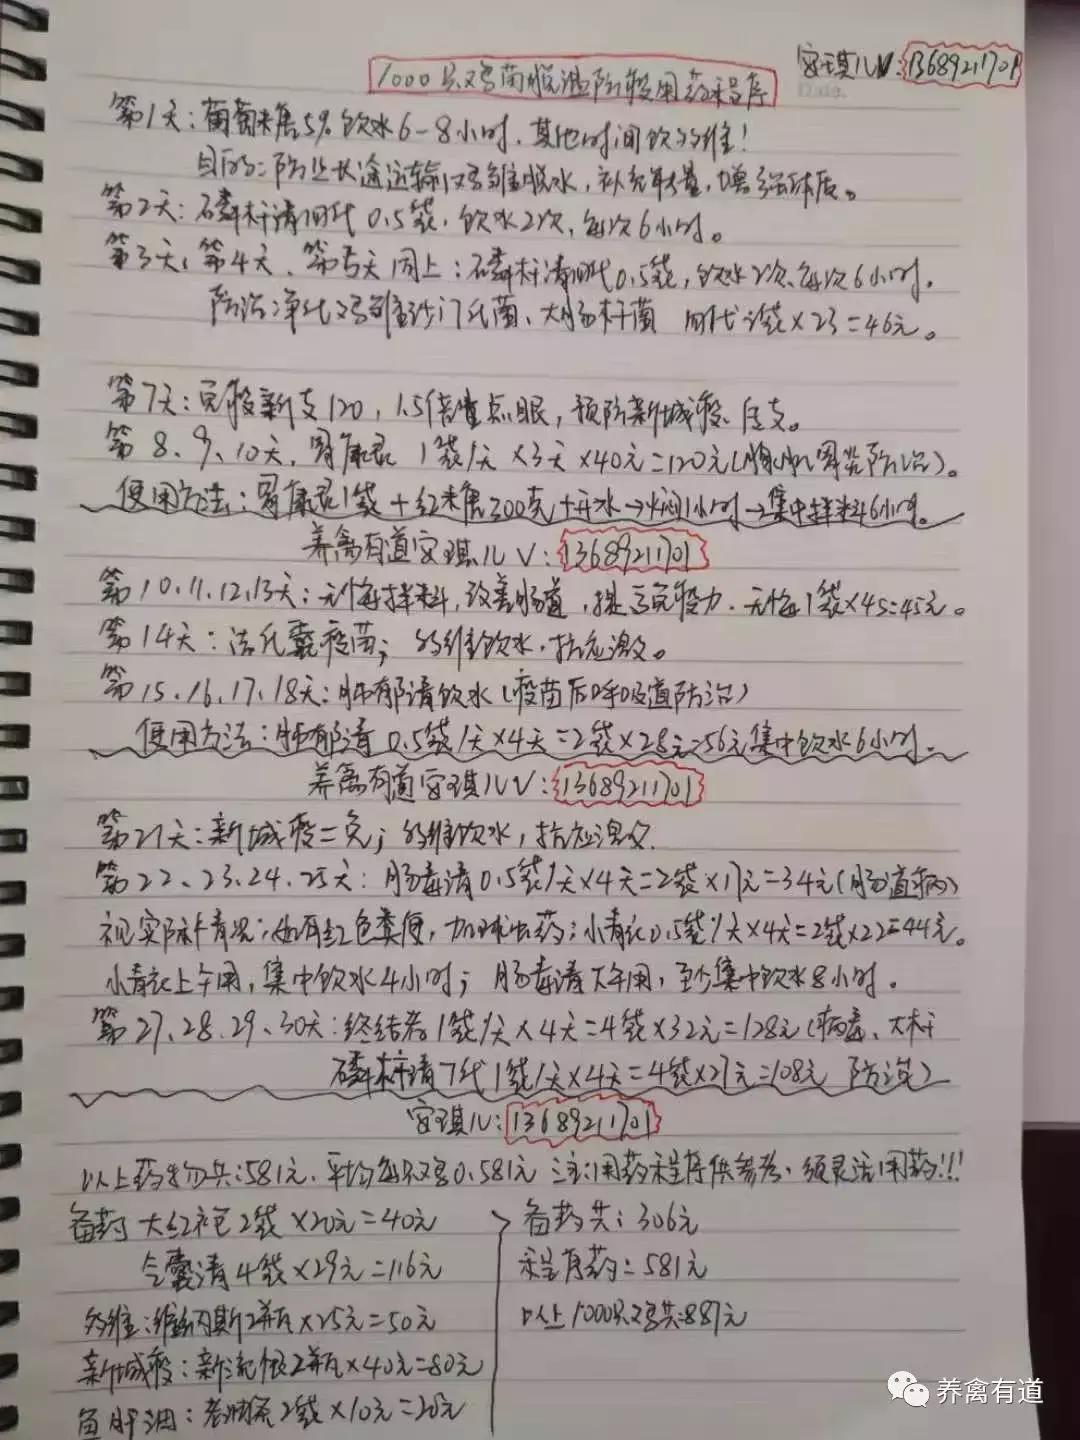 安琪儿V:13689211701
1000只鸡苗脱温阶段用药程序
第1天:葡萄糖5%饮水6-8小时,其他时间饮多维!
目的:防止长途运输鸡雏脱水,补充能量,增强体质。
第2天:磷杆清四代0.5袋,饮水2次,每次6小时。
第3天、第4天、第5天同上:磷杆清四代0.5袋,饮水2次、每次6小时。
防治净化鸡雏沙门氏菌、大肠杆菌 四代2袋×23=46元。
第7天:免疫新支120,1.5倍量点眼,预防新城疫、传支。
第8、9、10天,胃康灵 1袋/天×3天×40元=120元(腺肌胃炎防治)。
使用方法:胃康灵1袋+红糖300克+开水→焖1小时→集中拌料6小时。
养禽有道安琪儿V:13689211701
第10.11.12.13天:元梅拌料,改善肠道,提高免疫力.元梅1袋×45=45元。
第14天:法氏囊疫苗;多维饮水,抗应激。
第15.16.17.18天:肺郁清饮水(疫苗后呼吸道防治)
使用方法:肺郁清0.5袋/天×4天=2袋×28元=56元集中饮水6小时.
养禽有道安琪儿V:13689211701
第21天:新城疫二免;多维饮水,抗应激.
第22、23.24.25天:肠毒清0.5袋/天×4天=2袋×17元=34元(肠道病)
视实际情况:如有红色粪便,加球虫药:小青花0.5袋/天×4天=2袋×22=44元。
小青花上午用,集中饮水4小时;肠毒清下午用,至少集中饮水8小时.
第27、28、29、30天:终结者1袋/天×4天=4袋×32元=128元(病毒、大杆
磷杆清7代1袋/天×4天=4袋×27元=108元 防治)
安琪儿:13689211701
以上药物共:581元.平均每只鸡0.581元 注:用药程序供参考、须灵活用药!!!
备药 大红补包2袋×20元=40元
备药共:306元
气囊清4袋×29元=116元
程序药:581元
多维:维纳斯2瓶×25元=50元
以上1000只鸡共:887元
新城疫:新流惊2瓶×40元=80元
鱼肝油:2袋×10元=20元
养禽有道